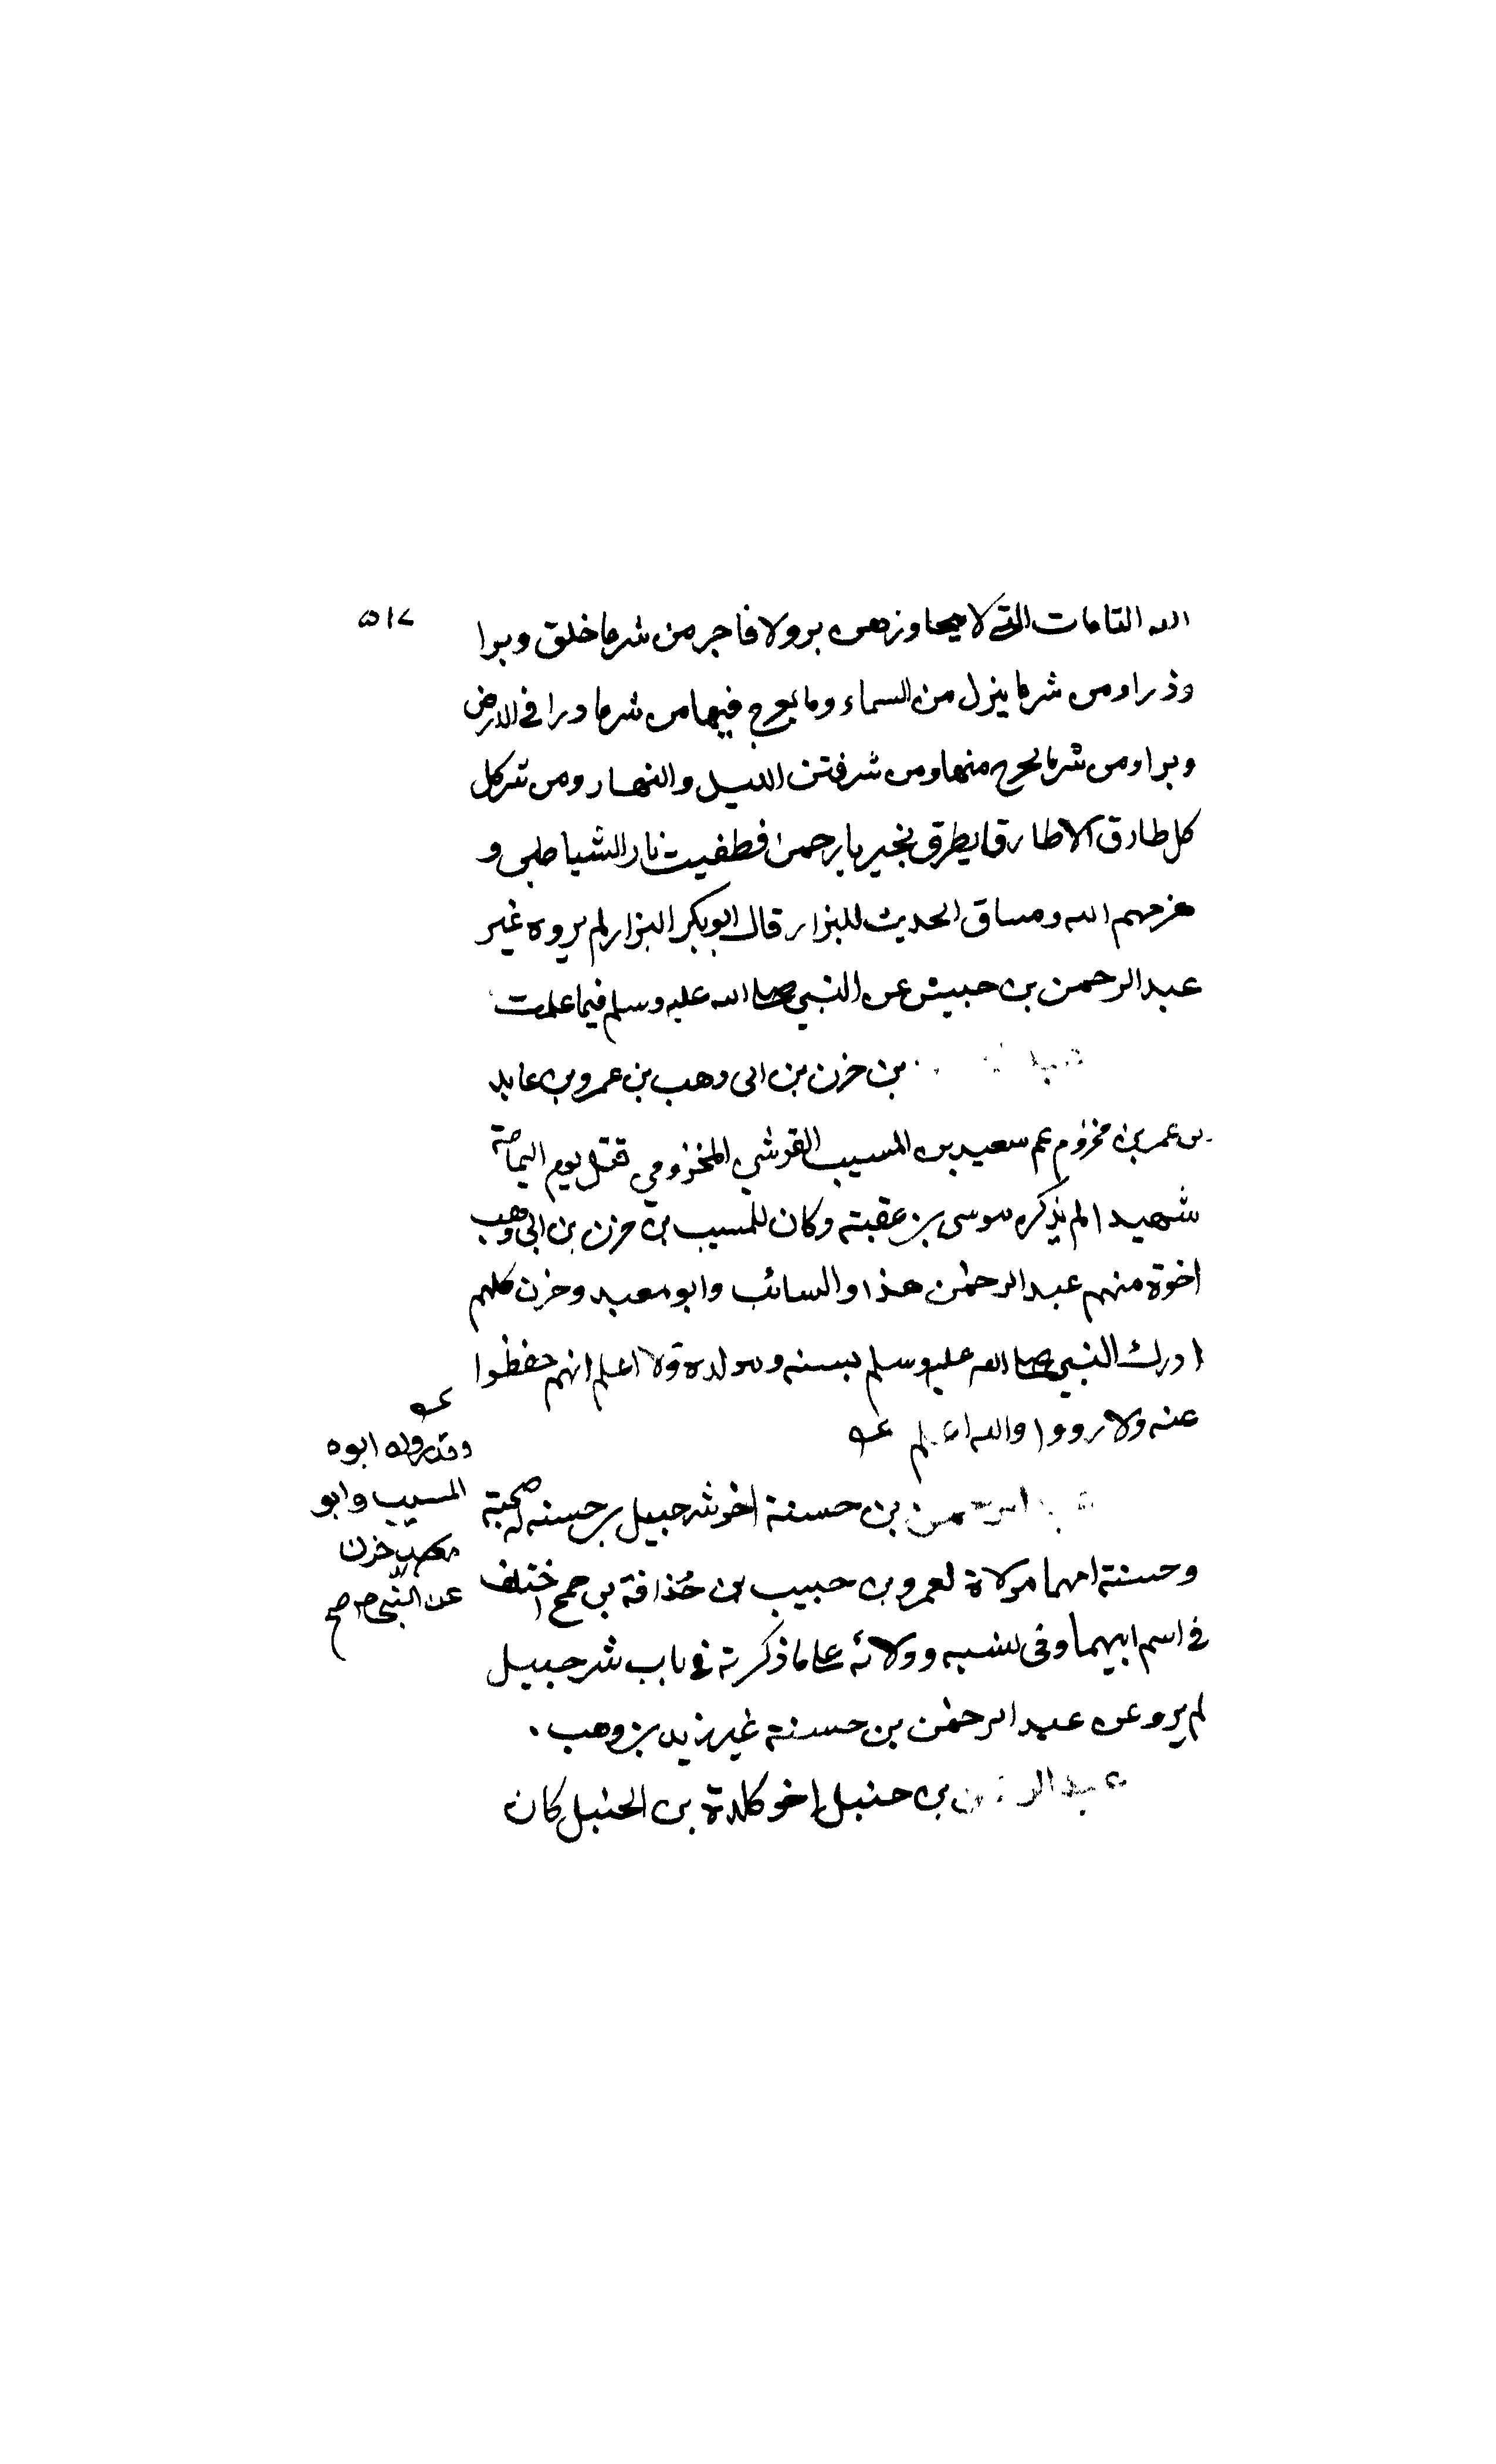 ٥١٧
الله التامات التي لا يجاوزهن بر ولا فاجر من شر ما خلق وبرا
وذرا ومن شر ما ينزل من السماء وما يعرج فيها من شر ما درا في الارض
وبرا ومن شر ما يخرج منها ومن شر فتن الليل والنهار ومن شر كل
كل طارق الا طارقا يطرق بخير يا رحمن فطفيت نار الشياطين و
هزمهم الله ومساق الحديث للبزار قال ابو بكر البزار لم يروه غير
عبد الرحمن بن حبيش عن النبي صلى الله عليه وسلم فيما علمت
بن حزن بن ابى وهب بن عمرو بن عابد
بن عمر بن مخزوم عم سعيد بن المسيب القرشي المخزومي قتل يوم اليمامة
شهيدا لم يذكره موسى بن عقبة وكان للمسيب بن حزن بن ابى وهب
اخوة منهم عبد الرحمن هذا والسائب وابو معبد وحزن كلهم
ادرك النبي صلى الله عليه وسلم بسنه ومولده ولا اعلم انهم حفظوا
عنه ولا رووا والله اعلم
وقد روى ابوه
المسيب وابو
معبد حزن
عن النبى
عبد الرحمن بن حسنة اخو شرحبيل بن حسنه له صحبة
وحسنة امهما مولاة لعمرو بن حبيب بن حذافة بن جمح اختلف
في اسم ابيهما وفى نسبه وولائه على ما ذكرته في باب شرحبيل
لم يرو عن عبد الرحمن بن حسنة غير زيد بن وهب .
عبد الرحمن بن حنبل اخو كلدة بن الحنبل كان